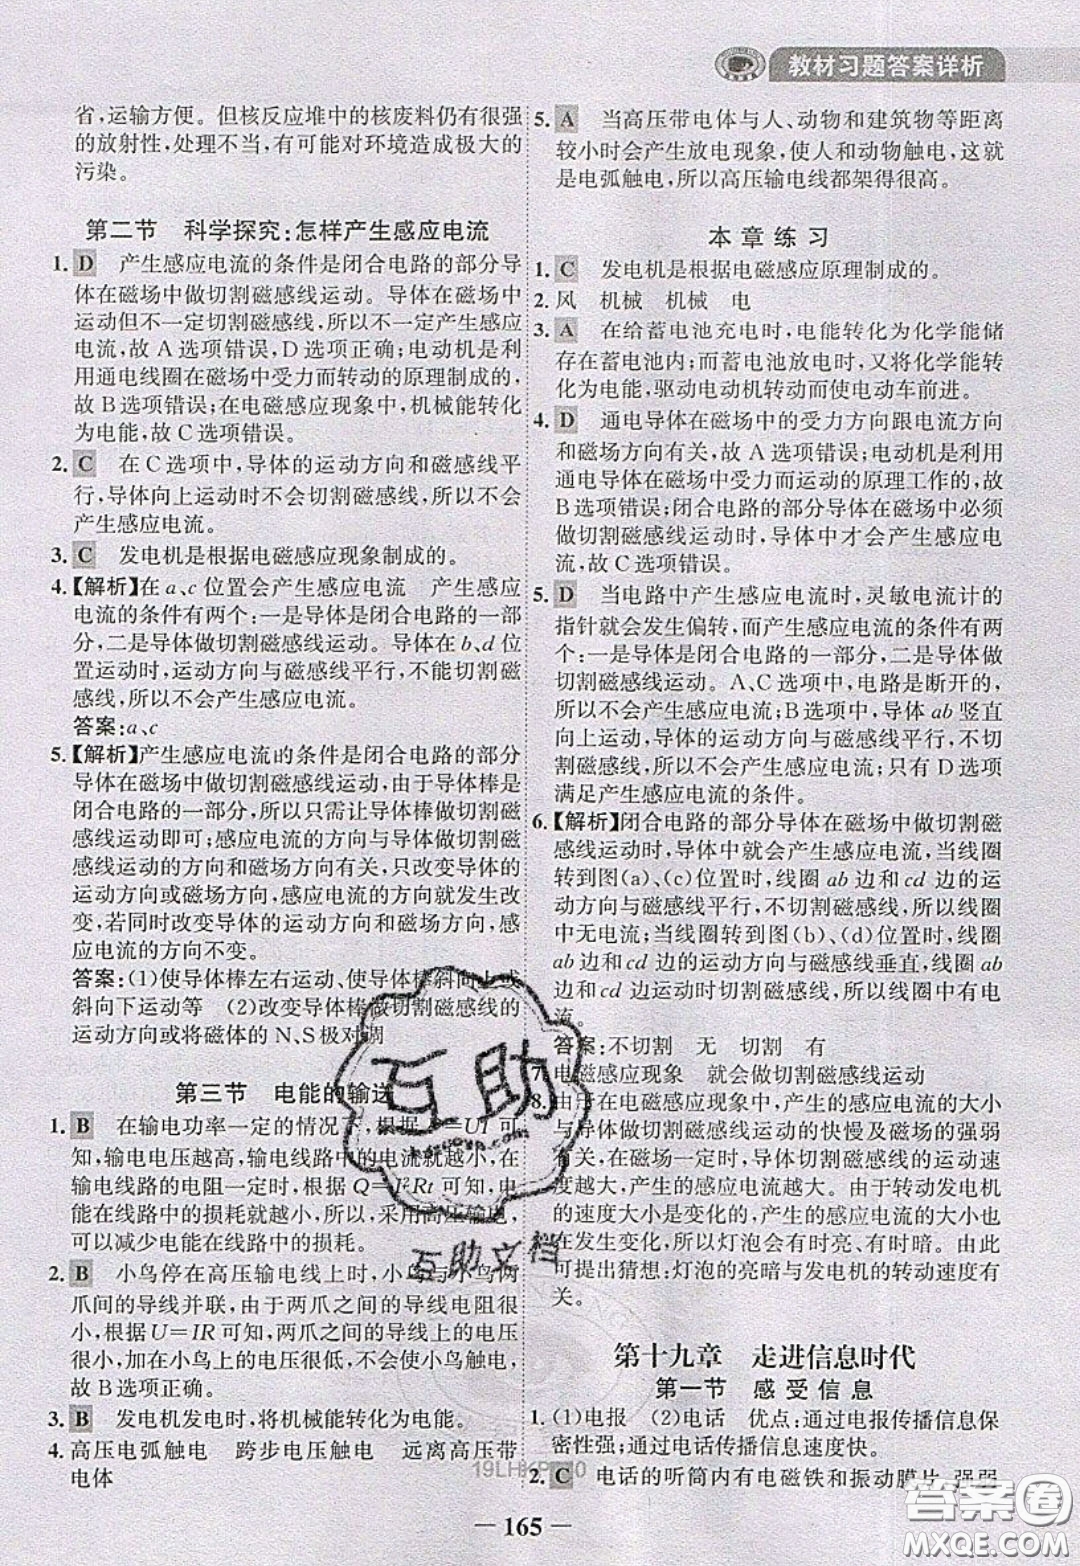 教材习题答案详析
省,运输方便。但核反应堆中的核废料仍有很强
的放射性,处理不当,有可能对环境造成极大的
污染。
第二节 科学探究:怎样产生感应电流
1. D 产生感应电流的条件是闭合电路的部分导
体在磁场中做切割磁感线运动。导体在磁场中
运动但不一定切割磁感线,所以不一定产生感应
电流,故A选项错误,D选项正确;电动机是利
用通电线圈在磁场中受力而转动的原理制成的,
故B选项错误;在电磁感应现象中,机械能转化
为电能,故C选项错误。
2. C 在C选项中,导体的运动方向和磁感线平
行,导体向上运动时不会切割磁感线,所以不会
产生感应电流。
3. C 发电机是根据电磁感应现象制成的。
4.【解析】在a、c位置会产生感应电流 产生感应
电流的条件有两个:一是导体是闭合电路的一部
分,二是导体做切割磁感线运动。导体在b、d位
置运动时,运动方向与磁感线平行,不能切割磁
感线,所以不会产生感应电流。
答案:a、c
5.【解析】产生感应电流的条件是闭合电路的部分
导体在磁场中做切割磁感线运动,由于导体棒是
闭合电路的一部分,所以只需让导体棒做切割磁
感线运动即可;感应电流的方向与导体做切割磁
感线运动的方向和磁场方向有关,只改变导体的
运动方向或磁场方向,感应电流的方向就发生改
变,若同时改变导体的运动方向和磁场方向,感
应电流的方向不变。
答案:(1)使导体棒左右运动、使导体棒斜向上或
斜向下运动等 (2)改变导体棒做切割磁感线的
运动方向或将磁体的N、S极对调
第三节 电能的输送
1. B 在输电功率一定的情况下,根据P=UI可
知,输电电压越高,输电线路中的电流就越小,在
输电线路的电阻一定时,根据Q=I²Rt可知,电
能在线路中的损耗就越小,所以,采用高压输电,
可以减少电能在线路中的损耗。
2. B 小鸟停在高压输电线上时,小鸟与小鸟两
爪间的导线并联,由于两爪之间的导线电阻很
小,根据U=IR可知,两爪之间的导线上的电压
很低,加在小鸟上的电压很低,不会使小鸟触电,
故B选项正确。
3. B 发电机发电时,将机械能转化为电能。
4. 高压电弧触电 跨步电压触电 远离高压带
电体
5. A 当高压带电体与人、动物和建筑物等距离
较小时会产生放电现象,使人和动物触电,这就
是电弧触电,所以高压输电线都架得很高。
本章练习
1. C 发电机是根据电磁感应原理制成的。
2. 风 机械 机械 电
3. A 在给蓄电池充电时,电能转化为化学能储
存在蓄电池内;而蓄电池放电时,又将化学能转
化为电能,驱动电动机转动而使电动车前进。
4. D 通电导体在磁场中的受力方向跟电流方向
和磁场方向有关,故A选项错误;电动机是利用
通电导体在磁场中受力而运动的原理工作的,故
B选项错误;闭合电路的部分导体在磁场中必须
做切割磁感线运动时,导体中才会产生感应电
流,故C选项错误。
5. D 当电路中产生感应电流时,灵敏电流计的
指针就会发生偏转,而产生感应电流的条件有两
个:一是导体是闭合电路的一部分,二是导体做
切割磁感线运动。A、C选项中,电路是断开的,
所以不会产生感应电流;B选项中,导体ab竖直
向上运动,导体的运动方向与磁感线平行,不切
割磁感线,所以不会产生感应电流;只有D选项
满足产生感应电流的条件。
6.【解析】闭合电路的部分导体在磁场中做切割磁
感线运动时,导体中就会产生感应电流,当线圈
转到图(a)、(c)位置时,线圈ab边和cd边的运
动方向与磁感线平行,不切割磁感线,所以线圈
中无电流;当线圈转到图(b)、(d)位置时,线圈
ab边和cd边的运动方向与磁感线垂直,线圈ab
边和cd边运动时切割磁感线,所以线圈中有电
流。
答案:不切割 无 切割 有
7. 电磁感应现象 就会做切割磁感线运动
8. 由于在电磁感应现象中,产生的感应电流的大小
与导体切割磁感线运动的快慢及磁场的强弱
有关,在磁场一定时,导体切割磁感线的运动速
度越大,产生的感应电流越大。由于转动发电机
的速度大小是变化的,产生的感应电流的大小也
在发生变化,所以灯泡会有时亮、有时暗。由此
可提出猜想:灯泡的亮暗与发电机的转动速度有
关。
第十九章 走进信息时代
第一节 感受信息
1. (1)电报 (2)电话 优点:通过电报传播信息保
密性强;通过电话传播信息速度快。
2. C 电话的听筒内有电磁铁和振动膜片,强弱
— 165 —
互助
互助文档
答案圈
MXQE.COM